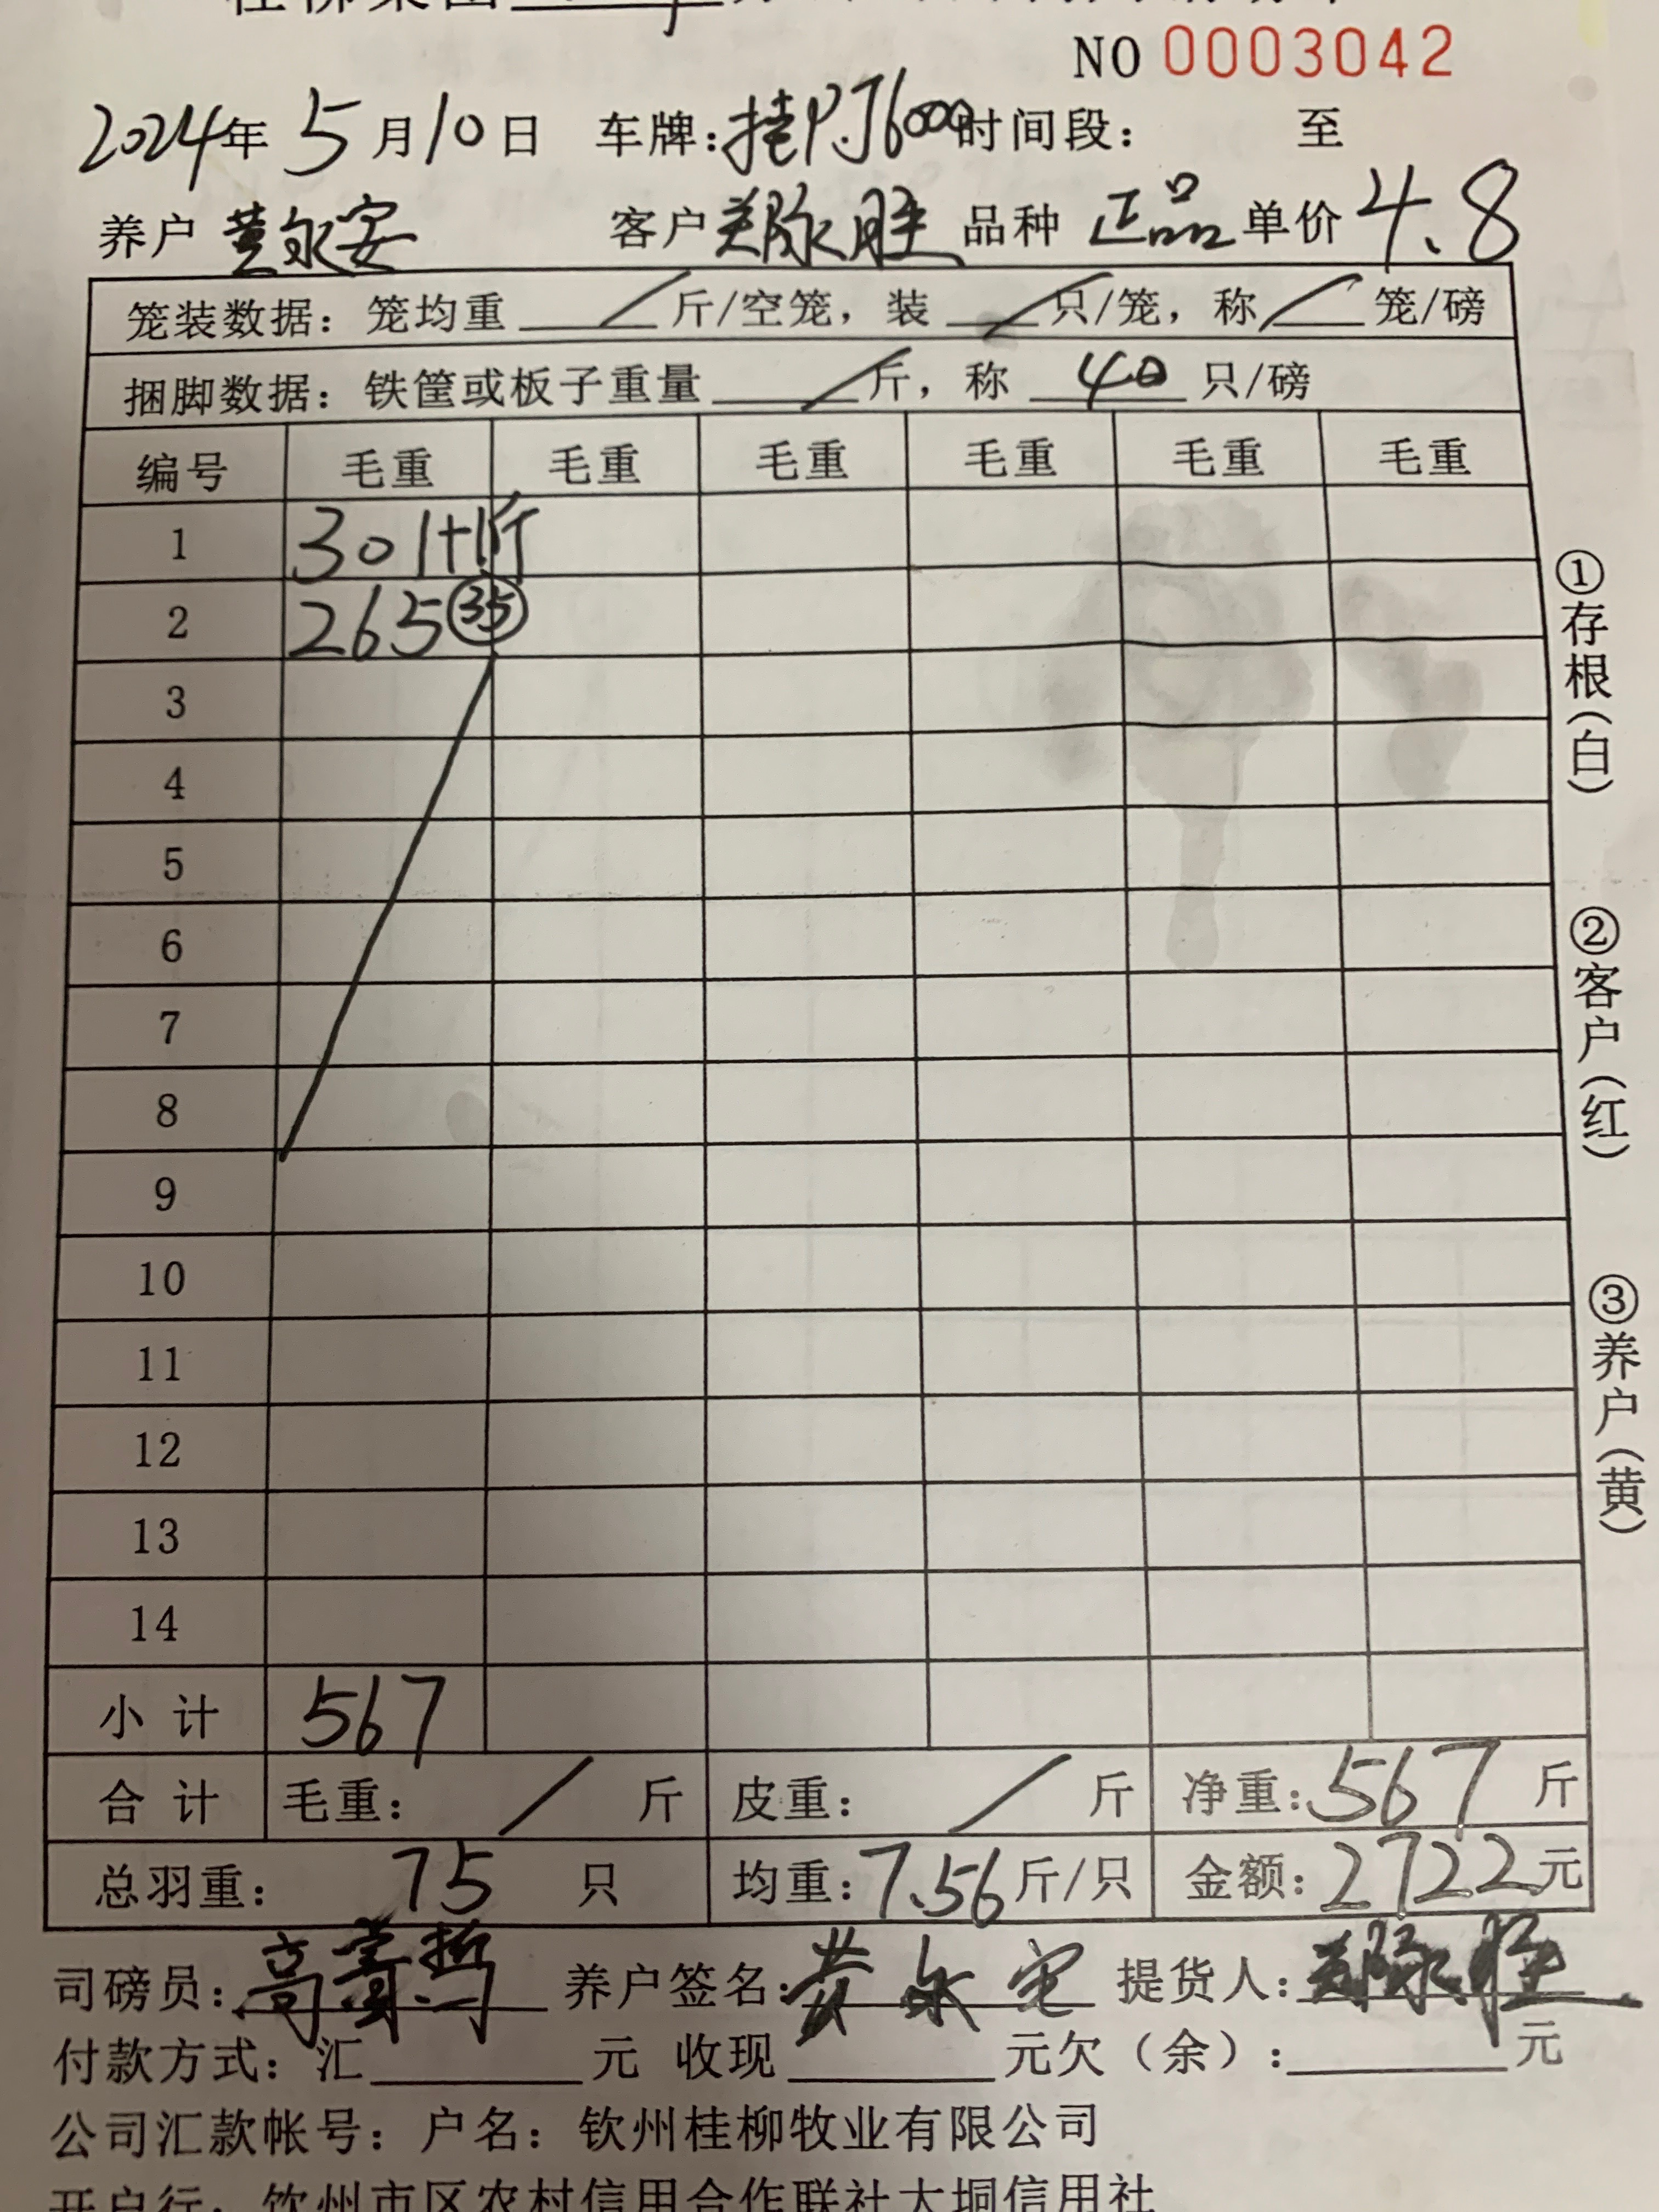 NO 0003042
2024年 5月10日 车牌:桂PJ6000时间段: 至
养户 黄永安 客户 郑永胜 品种 正品 单价 4.8
笼装数据:笼均重 / 斤/空笼,装 / 只/笼,称 / 笼/磅
捆脚数据:铁筐或板子重量 / 斤,称 40 只/磅
编号 毛重 毛重 毛重 毛重 毛重 毛重
1 301+1斤
2 265 ㉟
3
4
5
6
7
8
9
10
11
12
13
14
小计 567
合计 毛重: / 斤 皮重: / 斤 净重:567 斤
总羽重: 75 只 均重:7.56斤/只 金额:2722元
司磅员: 养户签名:黄永安 提货人:郑永胜
付款方式:汇 元 收现 元欠(余): 元
公司汇款帐号:户名:钦州桂柳牧业有限公司
开户行:钦州市区农村信用合作联社大垌信用社
①存根(白)
②客户(红)
③养户(黄)